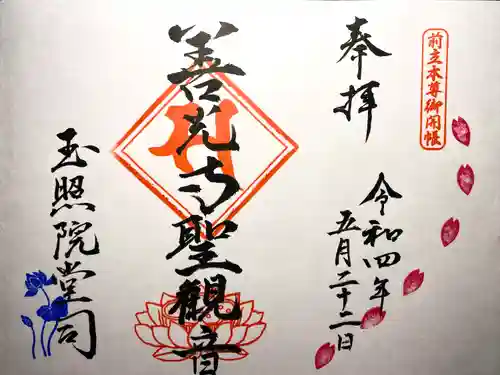 前立本尊御開帳
奉拝
令和四年
五月二十二日
善光寺聖観音
玉照院堂司